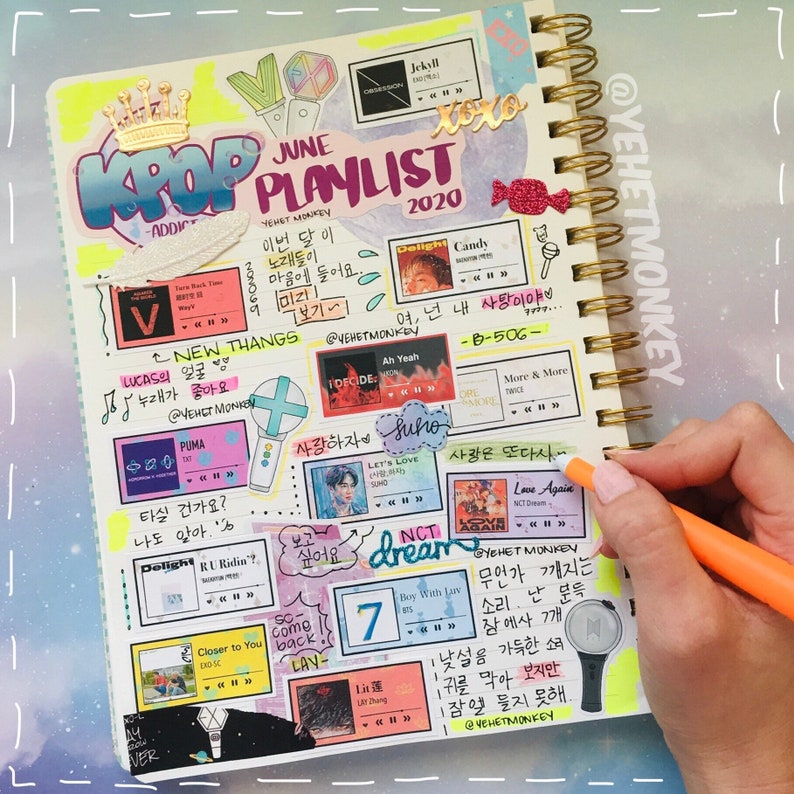 Jekyll
EXO (엑소)
OBSESSION
EXO
xoxo
KPOP
-ADDICT-
JUNE
PLAYLIST
2020
YEHET MONKEY
@YEHETMONKEY
이번 달 이
노래들이
마음에 들어요..
미리
보기~
Delight
Candy
BAEKHYUN (백현)
야, 넌 내 사탕이야♡
AWAKEN
THE WORLD
V
Turn Back Time
超时空 回
WayV
↑ NEW THANGS
LUCAS의 얼굴 ♡♡
노래가 좋아요
@YEHETMONKEY
@YEHETMONKEY
-B-506-
i DECIDE
Ah Yeah
iKON
MORE
& MORE
More & More
TWICE
PUMA
TXT
TOMORROW X TOGETHER
타실 건가요?
나도 알아.
사랑하자♡
suho
LET'S LOVE
(사랑,하자)
SUHO
사랑은 또다시..
LOVE
AGAIN
Love Again
NCT Dream
NCT
dream
보고
싶어요
Delight
R U Ridin'?
BAEKHYUN (백현)
@YEHETMONKEY
무언가 깨지는
소리 난 문득
잠에서 깨
낯설음 가득한 소리
귀를 막아 보지만
잠엘 들지 못해.
@YEHETMONKEY
7
Boy With Luv
BTS
SC
come
back!
Closer to You
EXO-SC
LAY-
Lit 莲
LAY Zhang
EXO
EVER